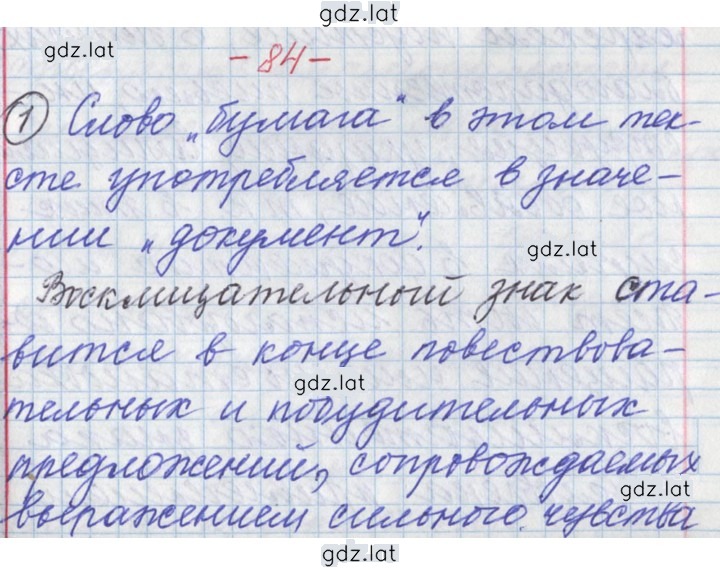 gdz.lat
gdz.lat
- 84 -
1 Слово "бумага" в этом тек-
сте употребляется в значе-
нии "документ".
gdz.lat
Восклицательный знак ста-
вится в конце повествова-
gdz.lat
тельных и побудительных
предложений, сопровождаемых
gdz.lat
выражением сильного чувства
gdz.lat